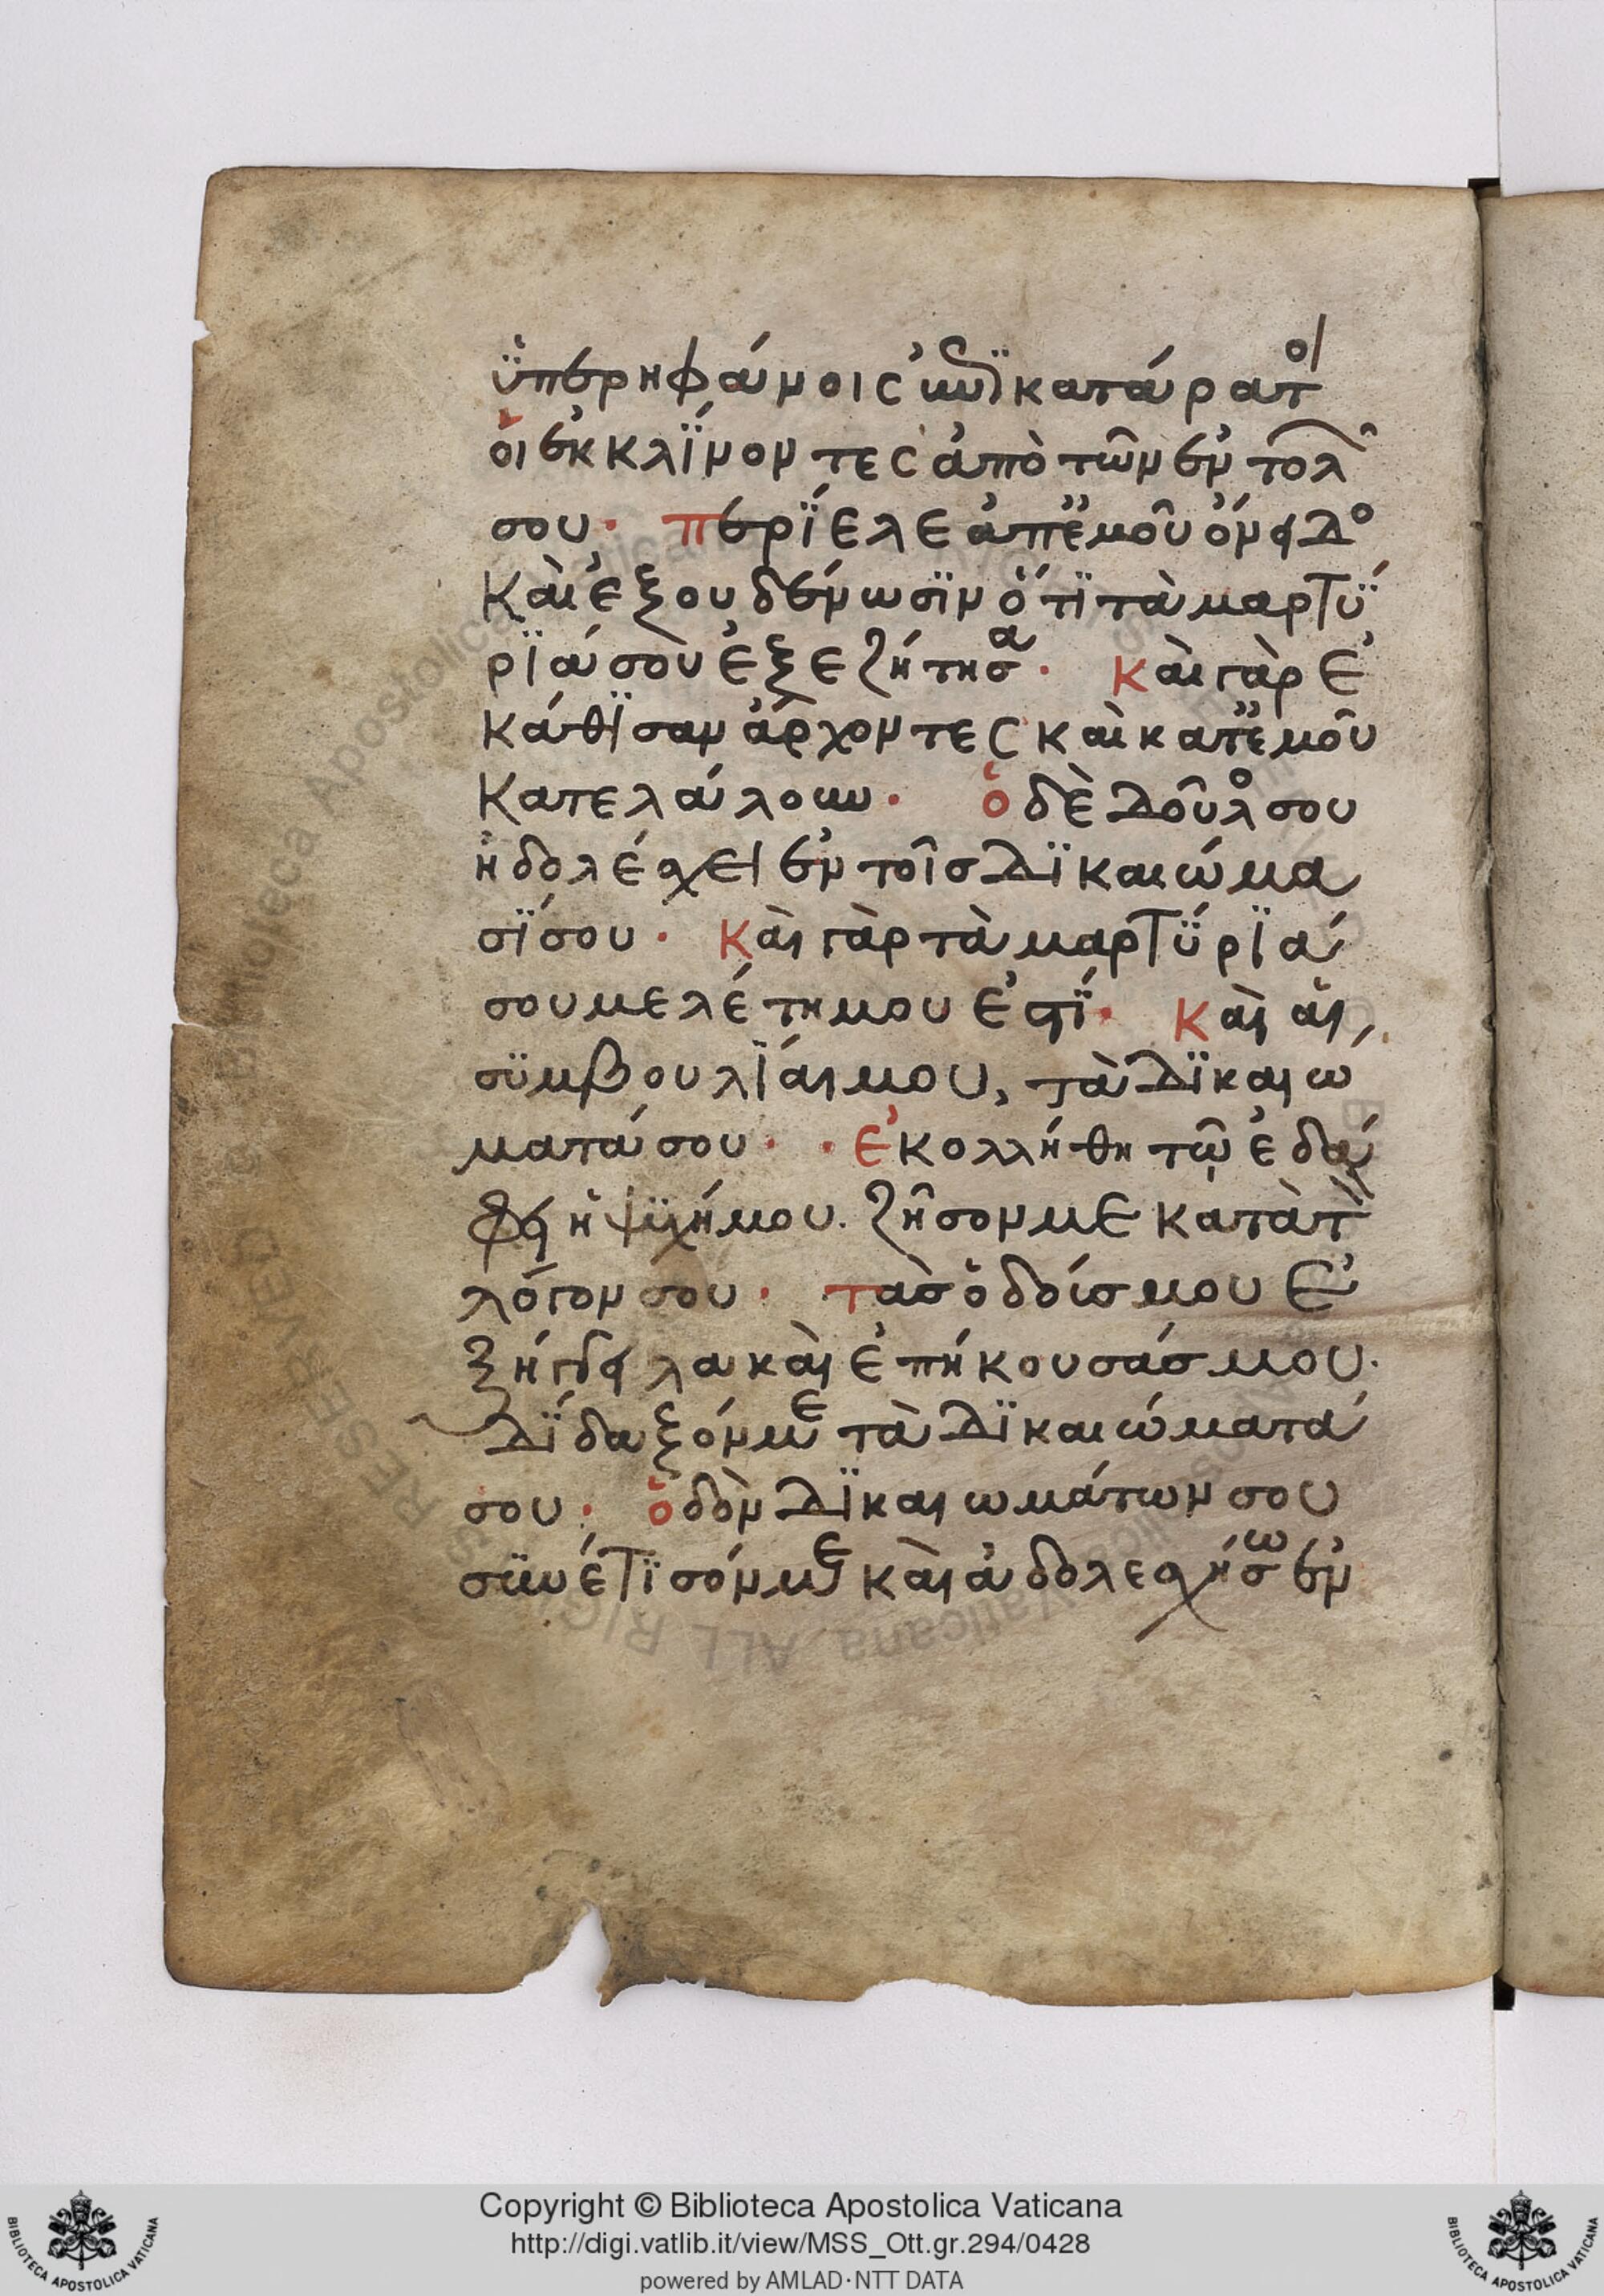 ὑπερηφάνοις ἐπικατάρατοι
οἱ ἐκκλίνοντες ἀπὸ τῶν ἐντολῶν
σου· Περίελε ἀπ' ἐμοῦ ὄνειδο
Καὶ ἐξουδένωσϊν ὅτϊ τὰ μαρτϋ
ρϊά σου ἐξεζήτησα· Καὶ γὰρ ἐ
κάθϊσαν ἄρχοντες καὶ κατ' ἐμοῦ
Κατελάλουν· ὁ δὲ δοῦλος σου
ἠδολέσχει ἐν τοῖσ δϊκαιώμα
σϊ σου· Καὶ γὰρ τὰ μαρτϋρϊά
σου μελέτη μου ἐστϊ· Καὶ αἱ
σϋμβουλϊαι μου, τὰ δϊκαιώ
ματά σου· ἐκολλήθη τῷ ἐδά
φει ἡ ψϋχή μου. ζῆσον με κατὰ τὸν
λόγον σου· τὰσ ὁδούσ μου ἐ
ξήγγειλα καὶ ἐπήκουσάσ μου.
Δϊδαξόν με τὰ δϊκαιώματά
σου· ὁδὸν δϊκαιωμάτων σου
σϋνέτϊσόν με καὶ ἀδολεσχήσω ἐν
Copyright © Biblioteca Apostolica Vaticana
http://digi.vatlib.it/view/MSS_Ott.gr.294/0428
powered by AMLAD·NTT DATA
BIBLIOTECA APOSTOLICA VATICANA
BIBLIOTECA APOSTOLICA VATICANA